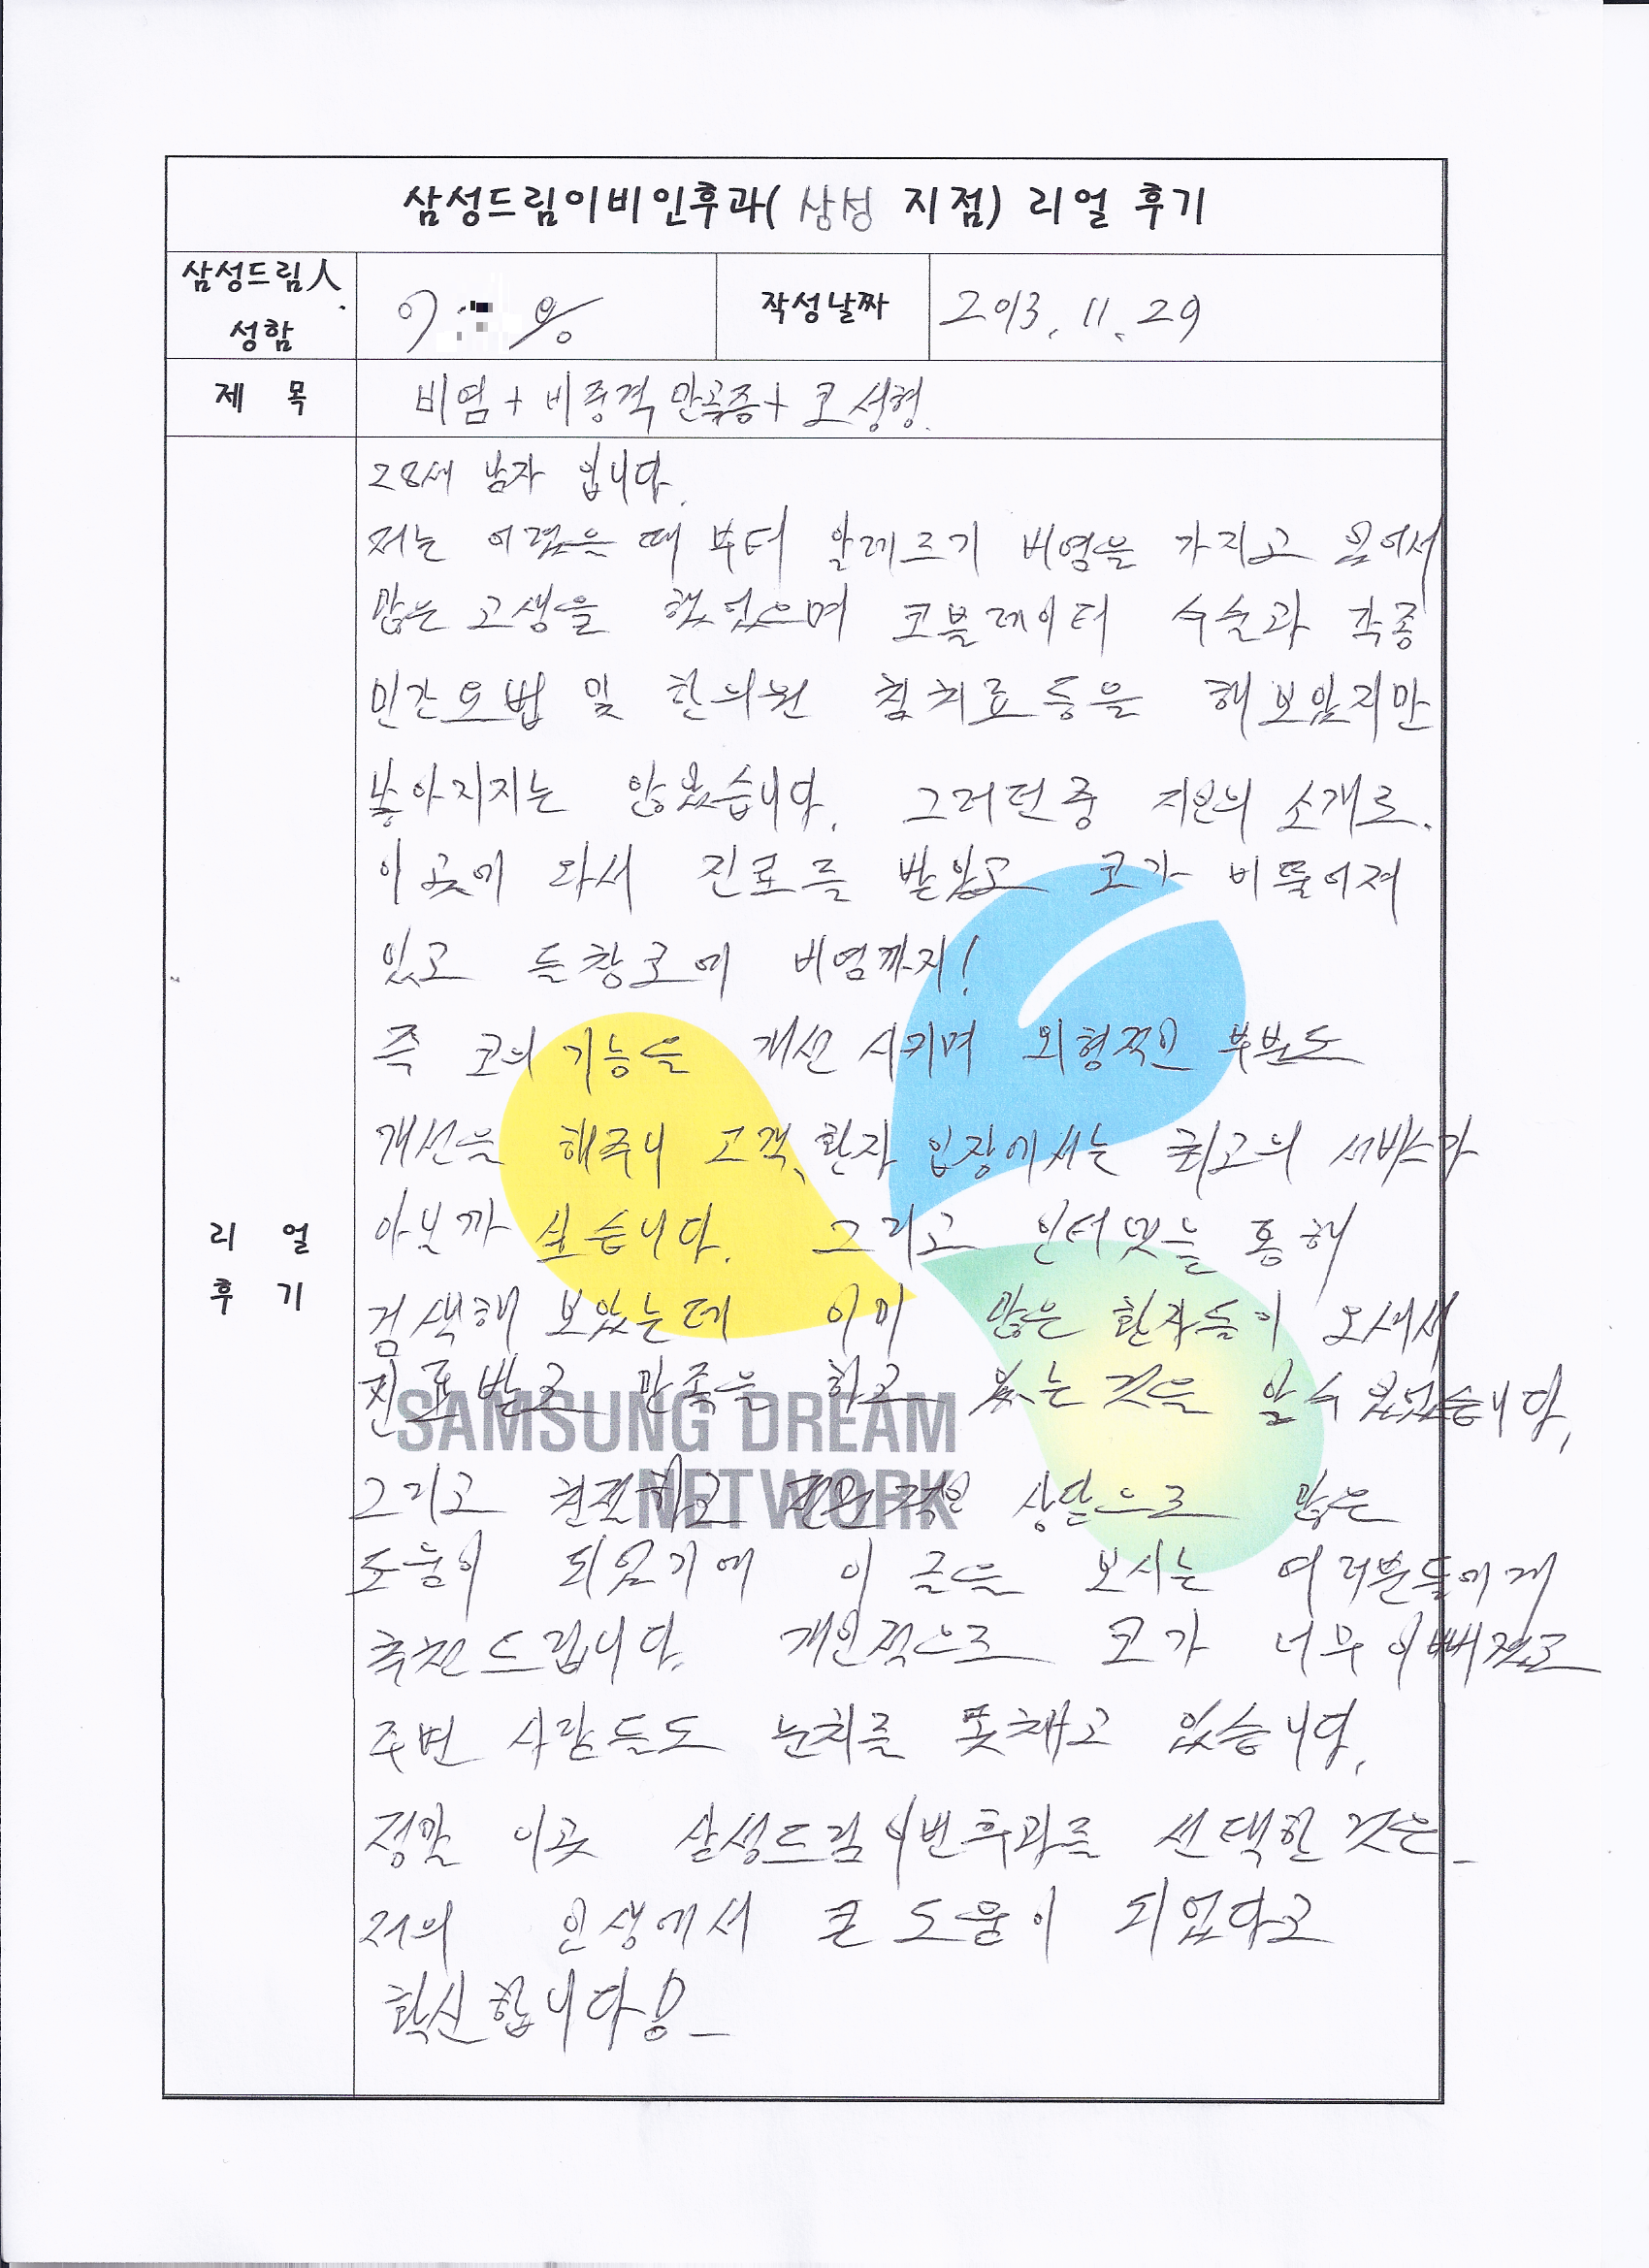 삼성드림이비인후과( 삼성 지점) 리얼 후기
삼성드림人
성함
이
작성날짜
2013. 11. 29
제 목
비염 + 비중격 만곡증 + 코 성형.
28세 남자 입니다.
저는 어렸을 때 부터 알레르기 비염을 가지고 있어서
많은 고생을 했었으며 코블레이터 수술과 각종
민간요법 및 한의원 침치료 등을 해보았지만
좋아지지는 않았습니다. 그러던중 지인의 소개로.
이곳에 와서 진료를 받았고 코가 비뚤어져
있고 들창코에 비염까지!
즉 코의 기능을 개선 시키며 외형적인 부분도
개선을 해주니 고객, 환자 입장에서는 최고의 서비스가
아닐까 싶습니다. 그리고 인터넷을 통해
검색해 보았는데 이미 많은 환자들이 오셔서
진료받고 만족을 하고 있는 것을 알 수 있었습니다.
그리고 친절하고 상담으로 많은
도움이 되었기에 이 글을 보시는 여러분들에게
추천드립니다. 개인적으로 코가 너무 이뻐졌고
주변 사람들도 눈치를 못채고 있습니다.
정말 이곳 삼성드림이비인후과를 선택한 것은
저의 인생에서 큰 도움이 되었다고
확신합니다!
리 얼
후 기
SAMSUNG DREAM
NETWORK